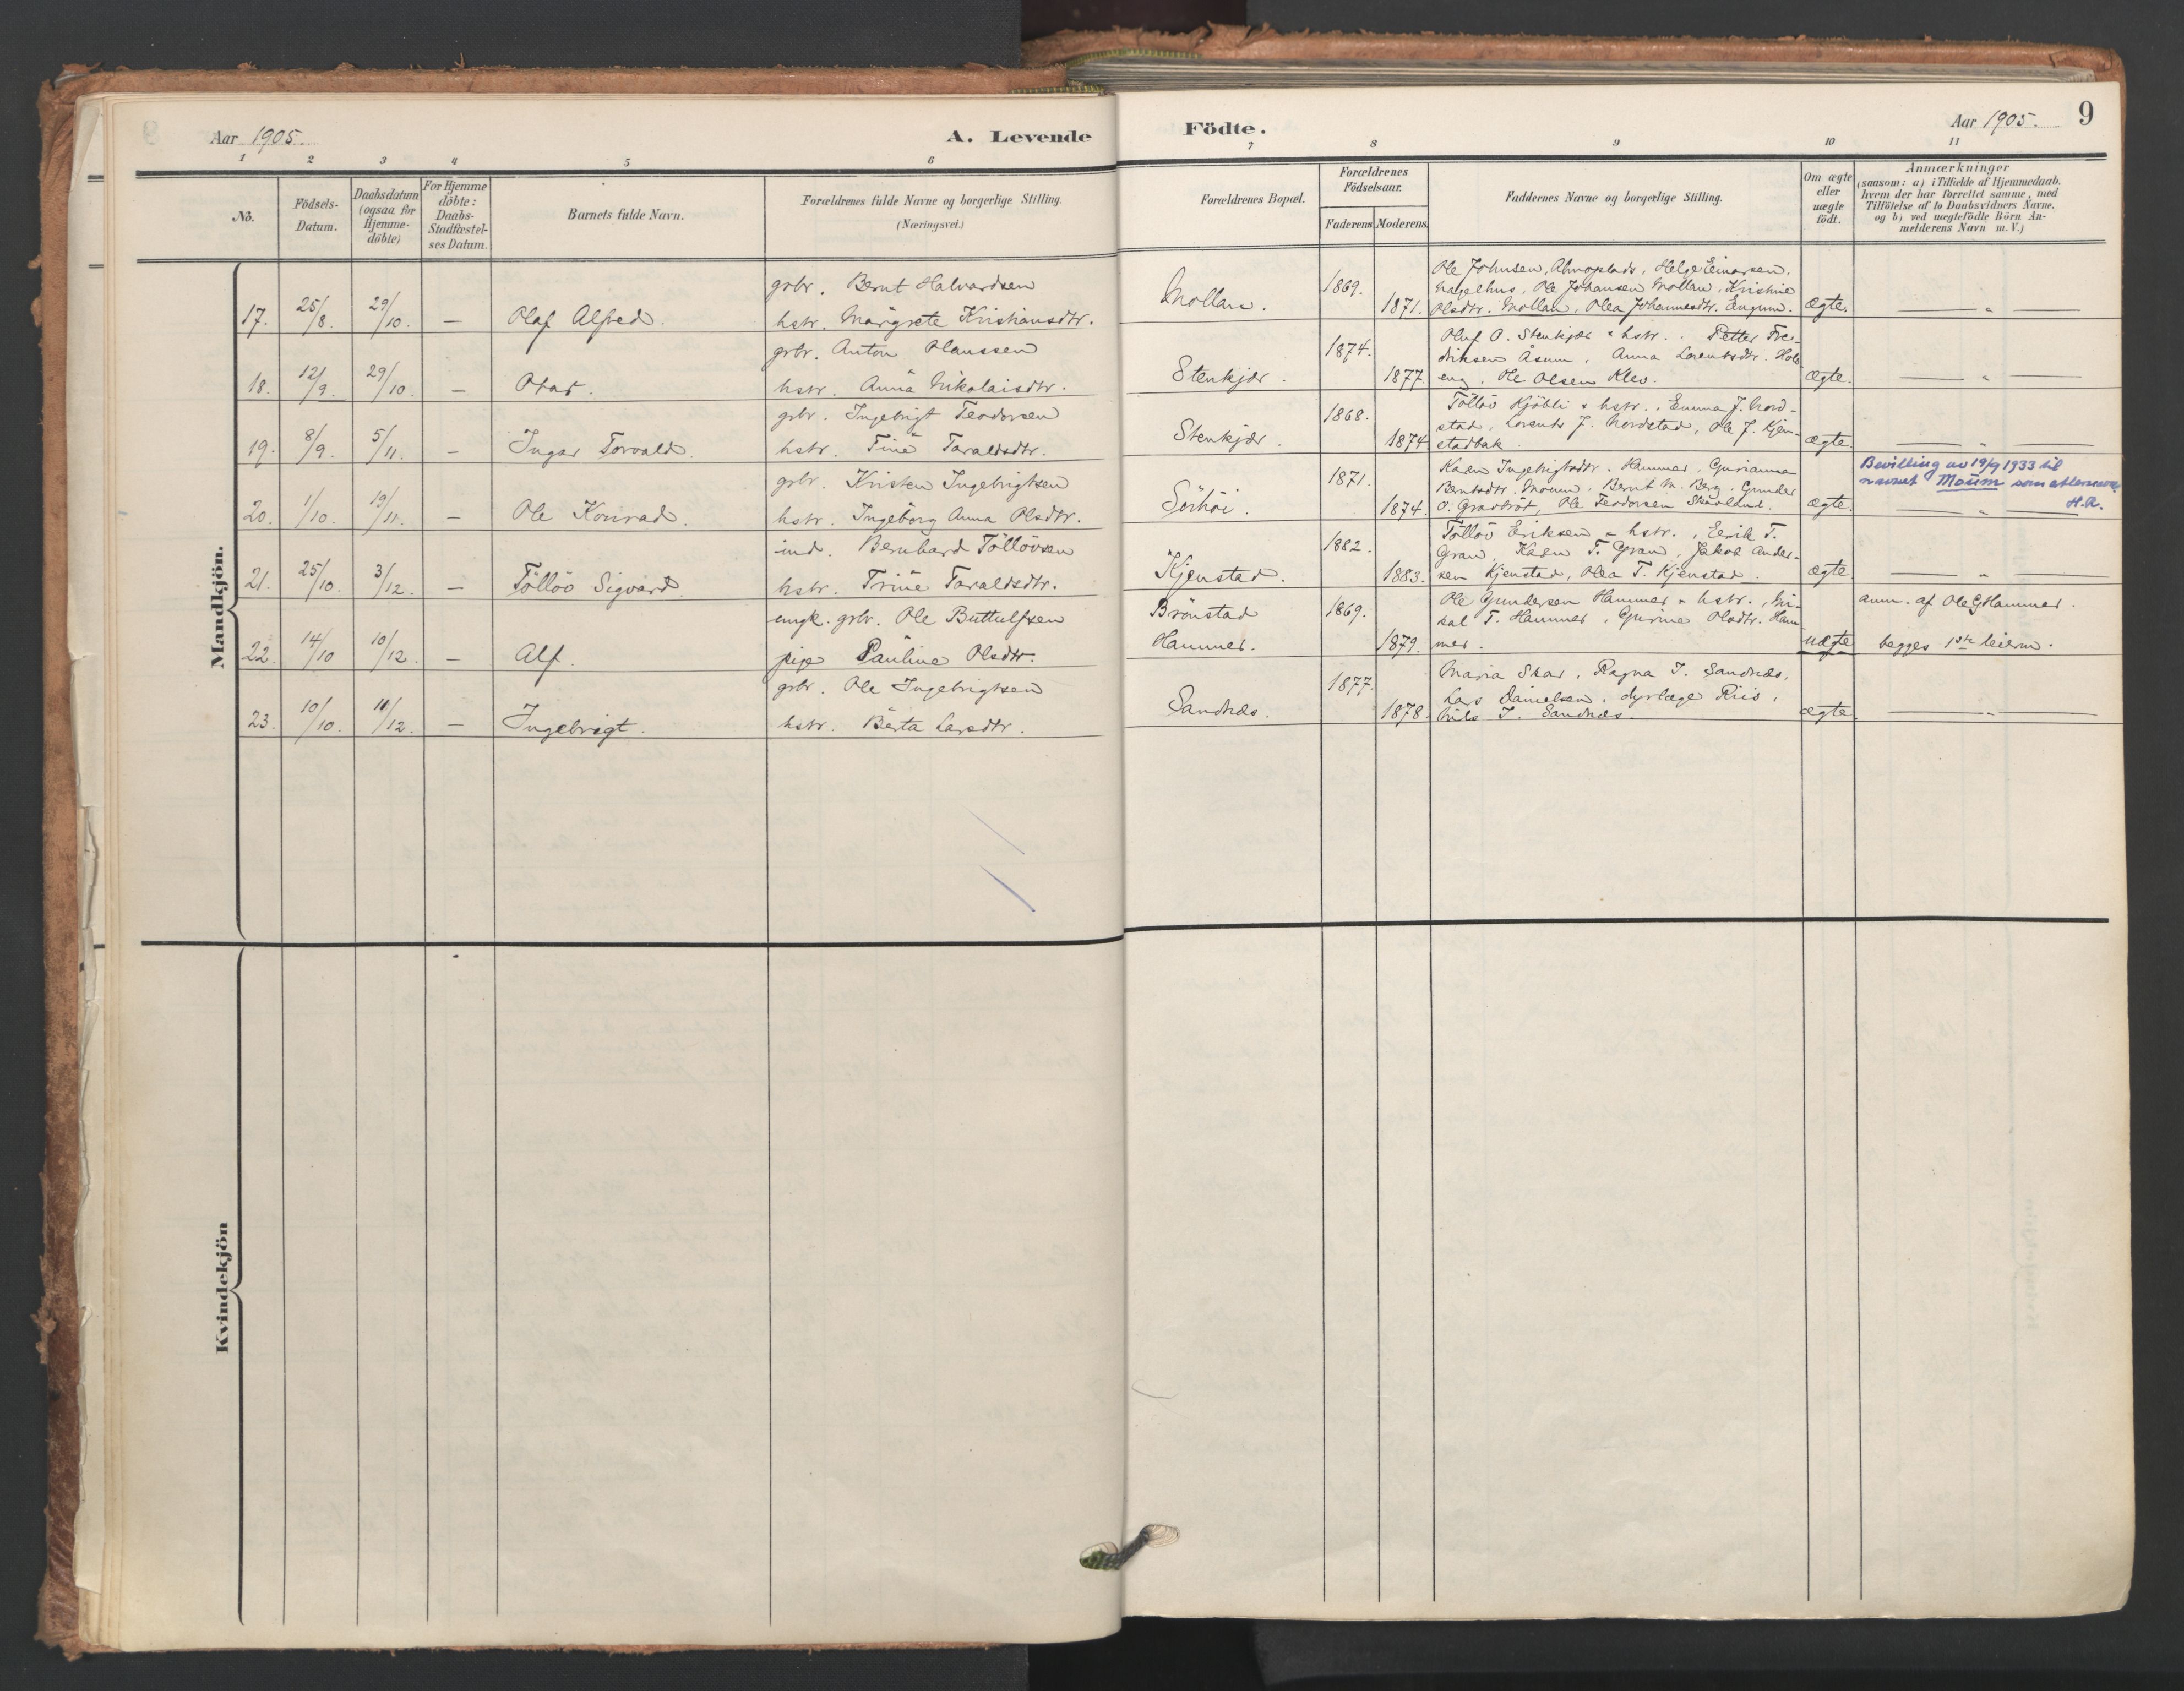 Aar 1905.
A. Levende
Födte.
Aar 1905.
9
1 2 3 4 5 6 7 8 9 10 11
No.
Födsels-
Datum.
Daabsdatum
(ogsaa for
Hjemme-
döbte)
For Hjemme
döbte:
Daabs-
Stadfæstel-
ses Datum.
Barnets fulde Navn.
Forældrenes fulde Navne og borgerlige Stilling.
(Næringsvei.)
Forældrenes Bopæl.
Forældrenes
Födselsaar.
Faderens Moderens
Faddernes Navne og borgerlige Stilling.
Om ægte
eller
uægte
födt.
Anmærkninger
(saasom: a) i Tilfælde af Hjemmedaab.
hvem der har forrettet samme, med
Tilföielse af to Daabsvidners Navne.
og b) ved uegtefödte Börn An-
melderens Navn m. V.)
Mandkjön.
17. 25/8. 29/10. — Olaf Alfred.
gbr. Bernt Halvardsen
hstr. Margrete Kristiansdtr.
Mollan. 1869. 1871.
Ole Johnsen, Almoplads, Helge Einarsen,
Nagelhus, Ole Johansen Mollan, Kristine
Olsdtr. Mollan, Olea Johannesdtr. Engum.
ægte. — " —
18. 12/9. 29/10. — Otar.
gbr. Anton Olaussen
hstr. Anna Nikolaisdtr.
Stenkjær. 1874. 1877.
Oluf O. Stenkjær & hstr., Petter Fre-
driksen Åsum, Anna Lorentsdtr. Hol-
eng, Ole Olsen Klev.
ægte. — " —
19. 8/9. 5/11. — Ingar Torvald.
gbr. Ingebrigt Teodorsen
hstr. Tine Taraldsdtr.
Stenkjær. 1868. 1874
Tölløv Kjöbli & hstr., Emma J. Nord-
stad, Lorents J. Nordstad, Ole J. Kjen-
stadbak.
ægte. — " —
20. 1/10. 19/11. — Ole Konrad.
gbr. Kristen Ingebrigtsen
hstr. Ingeborg Anna Olsdtr.
Sörhöi. 1871. 1874.
Karen Ingebrigtsdtr. Hammer, Gurianna
Berntsdtr. Moum, Bernt M. Berg, Gunder
O. Gradbröt, Ole Teodorsen Skavland.
ægte.
Bevilling av 19/9 1933 til
navnet Moum som etternavn
H.R.
— " —
21. 25/10. 3/12. — Tölløv Sigvard.
ind. Bernhard Tölløvsen
hstr. Trine Taraldsdtr.
Kjenstad. 1882. 1883.
Tölløv Eriksen & hstr., Eerik T.
Gran, Karen T. Gran, Jakob Ander-
sen Kjenstad, Olea T. Kjenstad.
ægte — " —
22. 14/10 10/12. — Alf.
ungk. gbr. Ole Buttulfsen
pige Pauline Olsdtr.
Brönstad
Hammer. 1869. 1879.
Ole Gundersen Hammer & hstr., Mi-
kal T. Hammer, Gurine Olsdtr. Ham-
mer.
uægte
anm. af Ole G Hammer.
begges 1ste leierm.
23. 10/10. 11/12. — Ingebrigt.
gbr. Ole Ingebrigtsen
hstr. Berta Larsdtr.
Sandnæs. 1877. 1878.
Maria Skar, Ragna I. Sandnæs,
Lars Danielsen, dyrlæge Riis,
Nils I. Sandnæs.
ægte — " —
Kvindekjön